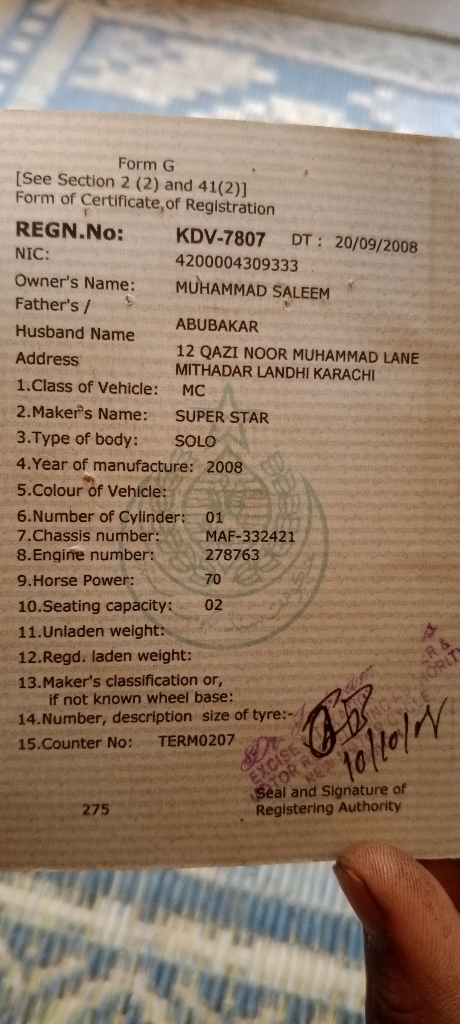 Form G
[See Section 2 (2) and 41(2)]
Form of Certificate of Registration
REGN.No: KDV-7807 DT : 20/09/2008
NIC: 4200004309333
Owner's Name: MUHAMMAD SALEEM
Father's /
Husband Name ABUBAKAR
Address 12 QAZI NOOR MUHAMMAD LANE
MITHADAR LANDHI KARACHI
1.Class of Vehicle: MC
2.Maker's Name: SUPER STAR
3.Type of body: SOLO
4.Year of manufacture: 2008
5.Colour of Vehicle:
6.Number of Cylinder: 01
7.Chassis number: MAF-332421
8.Engine number: 278763
9.Horse Power: 70
10.Seating capacity: 02
11.Unladen weight:
12.Regd. laden weight:
13.Maker's classification or,
if not known wheel base:
14.Number, description size of tyre:-
15.Counter No: TERM0207
EXCISE
10/10/
Seal and Signature of
Registering Authority
275